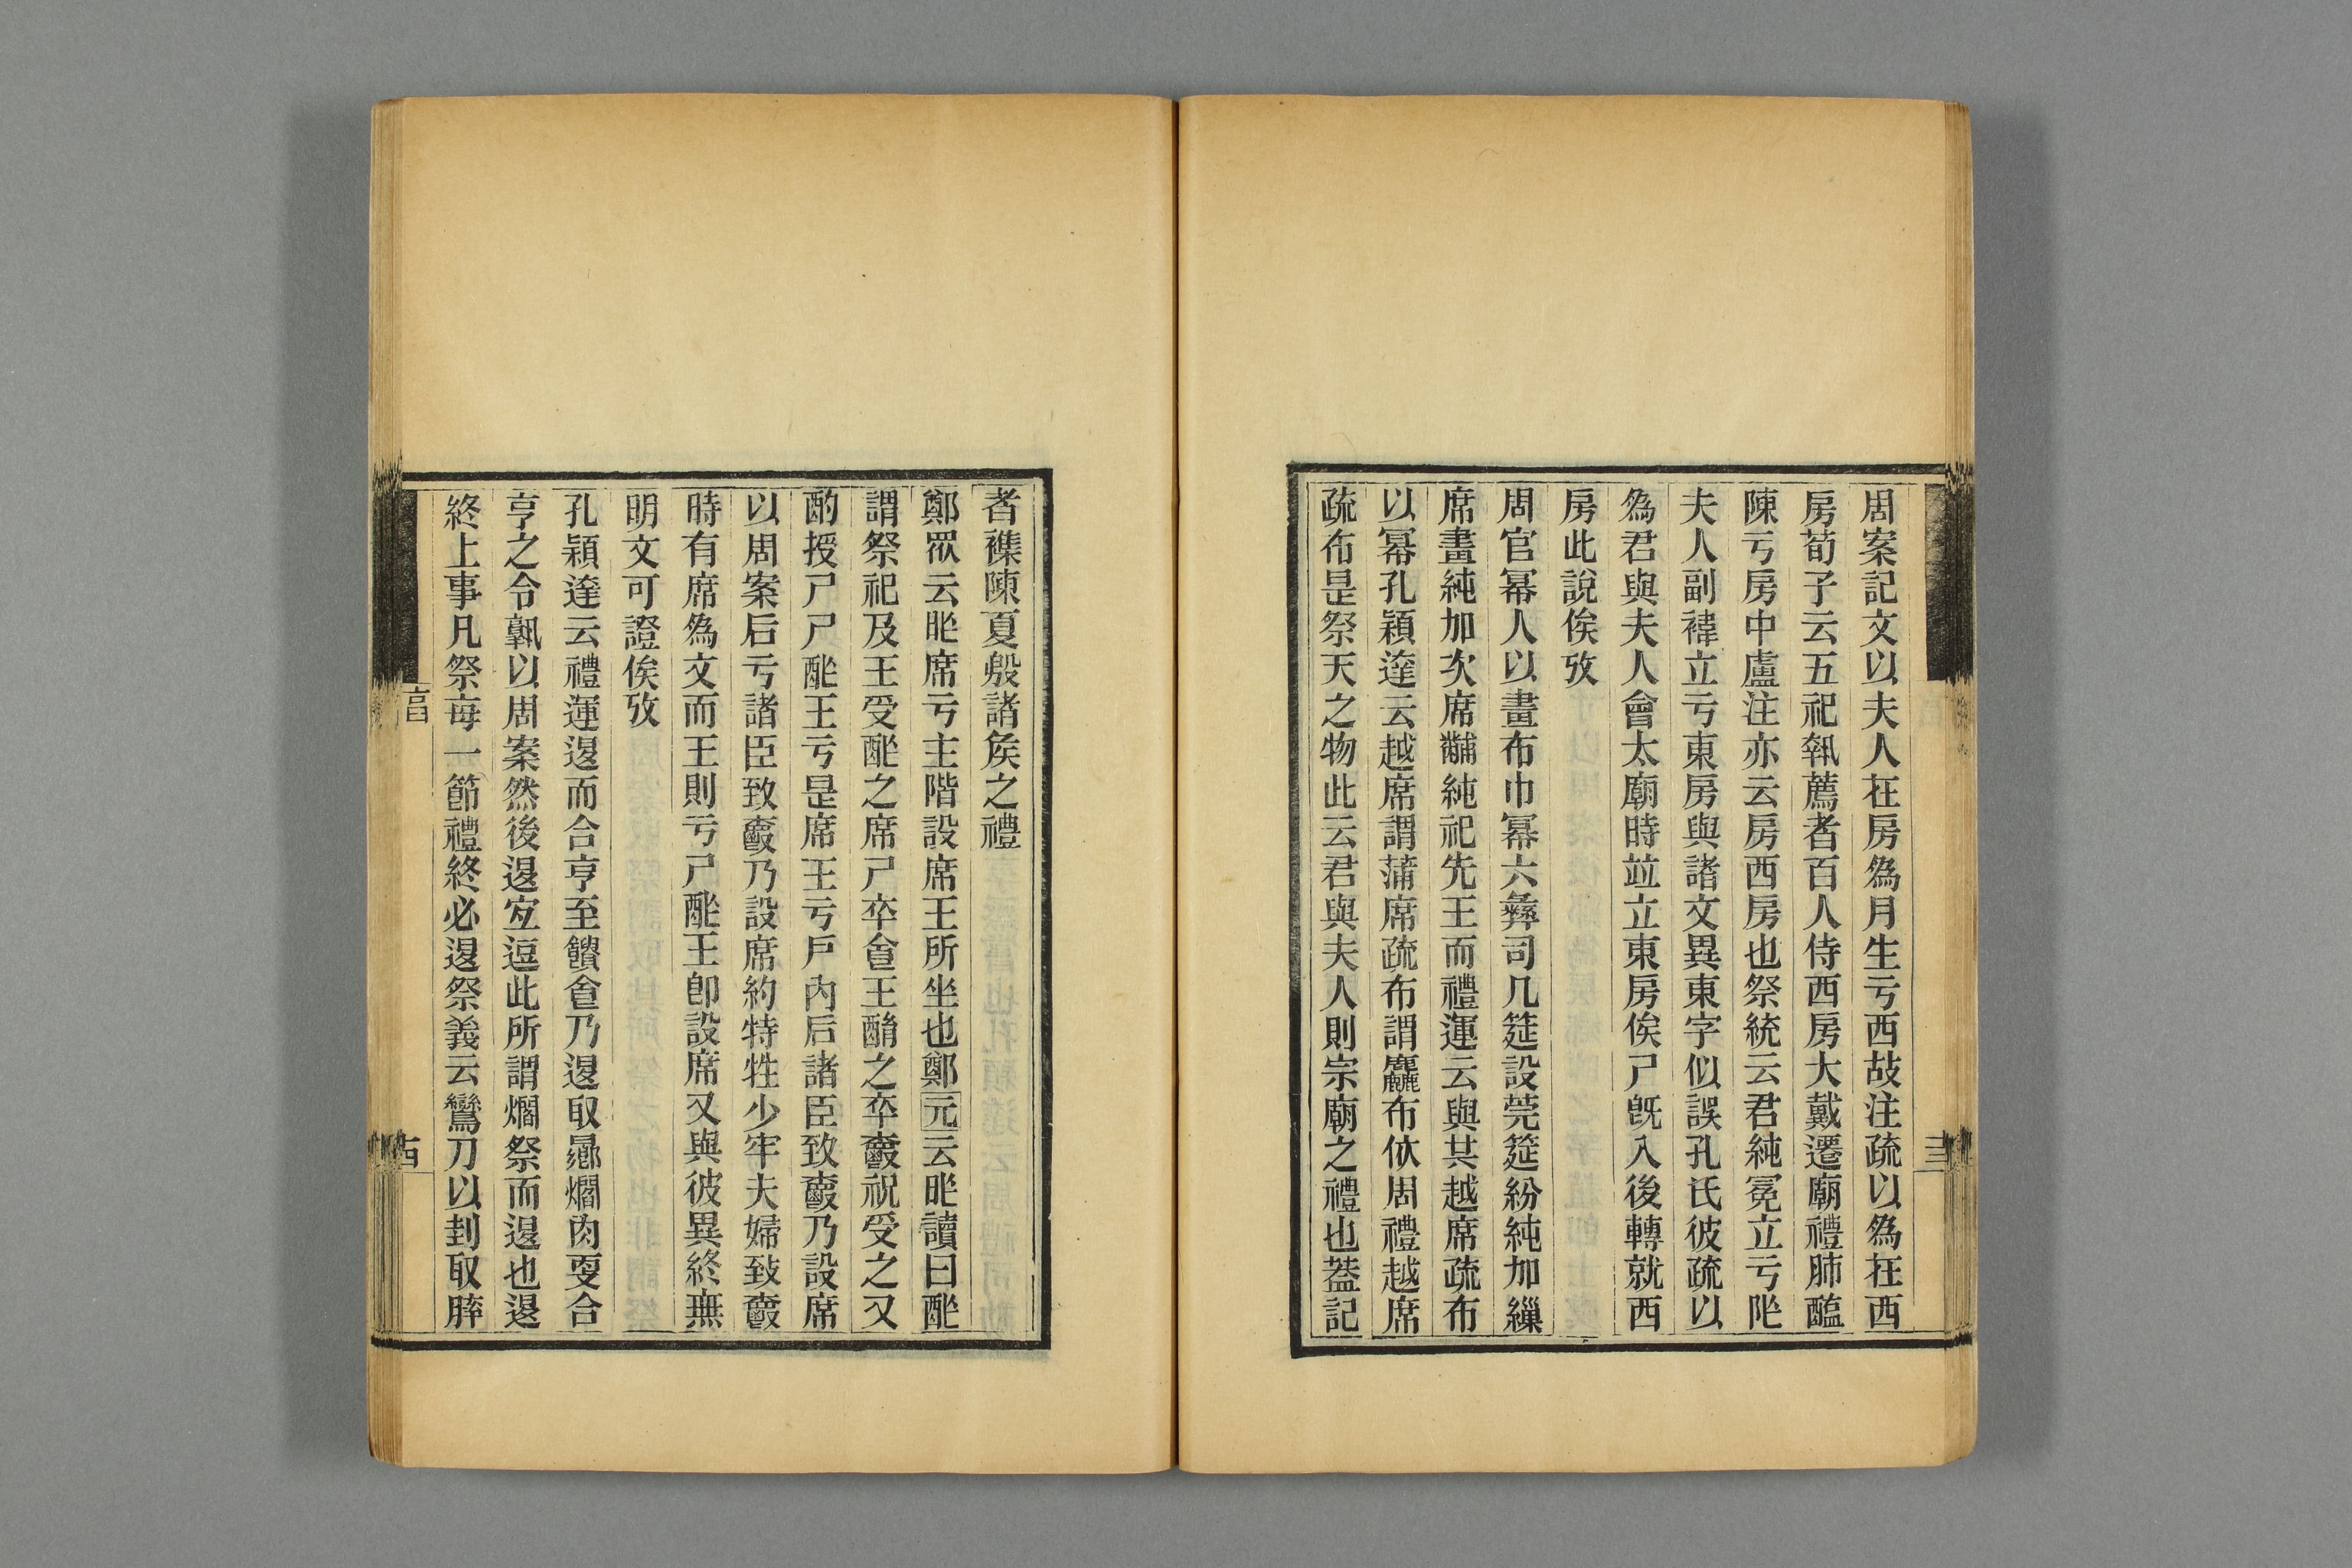 周案記文以夫人在房為月生亏西故注疏以為在西
房荀子云五祀執薦者百人侍西房大戴遷廟禮肺醢
陳亏房中盧注亦云房西房也祭統云君純冕立亏阼
夫人副褘立亏東房與諸文異東字似誤孔氏彼疏以
為君與夫人會太廟時竝立東房俟尸旣入後轉就西
房此說俟攷
周官冪人以畫布巾冪六彝司几筵設莞筵紛純加繅
席畫純加次席黼純祀先王而禮運云與其越席疏布
以冪孔穎達云越席謂蒲席疏布謂麤布依周禮越席
疏布是祭天之物此云君與夫人則宗廟之禮也葢記
者襍陳夏殷諸矦之禮
鄭眾云昨席亏主階設席王所坐也鄭元云昨讀曰酢
謂祭祀及王受酢之席尸卒㑒王酳之卒爵祝受之又
酌授尸尸酢王亏是席王亏戶內后諸臣致爵乃設席
以周案后亏諸臣致爵乃設席約特牲少牢夫婦致爵
時有席為文而王則亏尸酢王卽設席又與彼異終無
明文可證俟攷
孔穎達云禮運退而合亨至饋㑒乃退取曏爓肉更合
亨之令孰以周案然後退㝎逗此所謂爓祭而退也退
終上事凡祭每一節禮終必退祭義云鸞刀以刲取膟